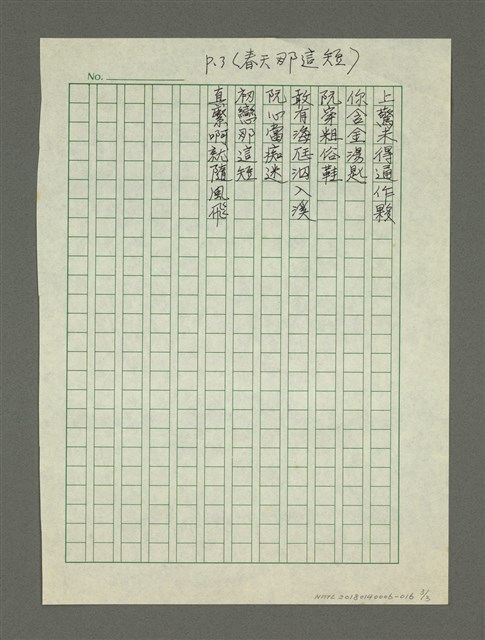 P.3(春天那這短)
No.
上驚未得通作夥
你含金湯匙
阮穿粗俗鞋
敢有海𫙮泅入溪
阮心當痴迷
初戀那這短
直縏啊就隨風飛
NMTL20180140006-016 3/3